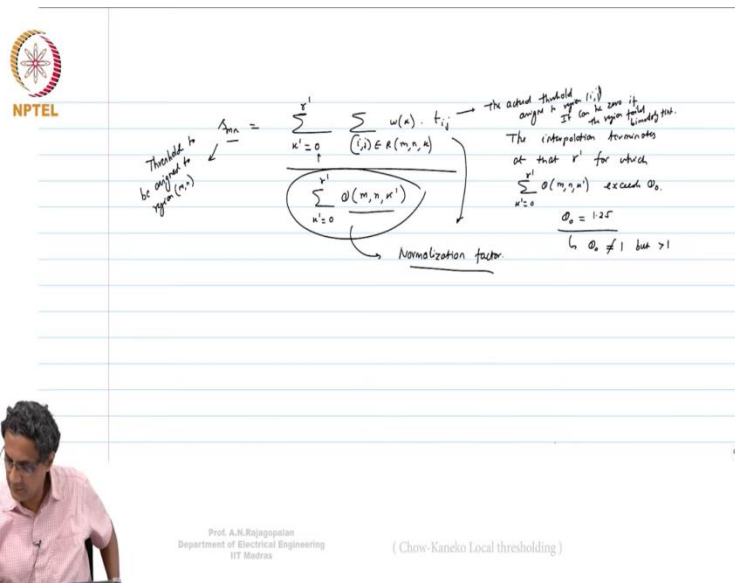 NPTEL
Threshold to be assigned to region (m,n)
s_mn = Σ_{κ'=0}^{r'} Σ_{(i,j) ∈ R(m,n,κ)} w(κ) · t_ij
Σ_{κ'=0}^{r'} Q(m,n,κ')
Normalization factor.
The actual threshold
assigned to region (i,j)
It can be zero if
the region failed
bimodality test.
The interpolation terminates
at that r' for which
Σ_{κ'=0}^{r'} Q(m,n,κ') exceeds Q₀.
Q₀ = 1.25
Q₀ ≠ 1 but >1
Prof. A.N.Rajagopalan
Department of Electrical Engineering
IIT Madras
( Chow-Kaneko Local thresholding )